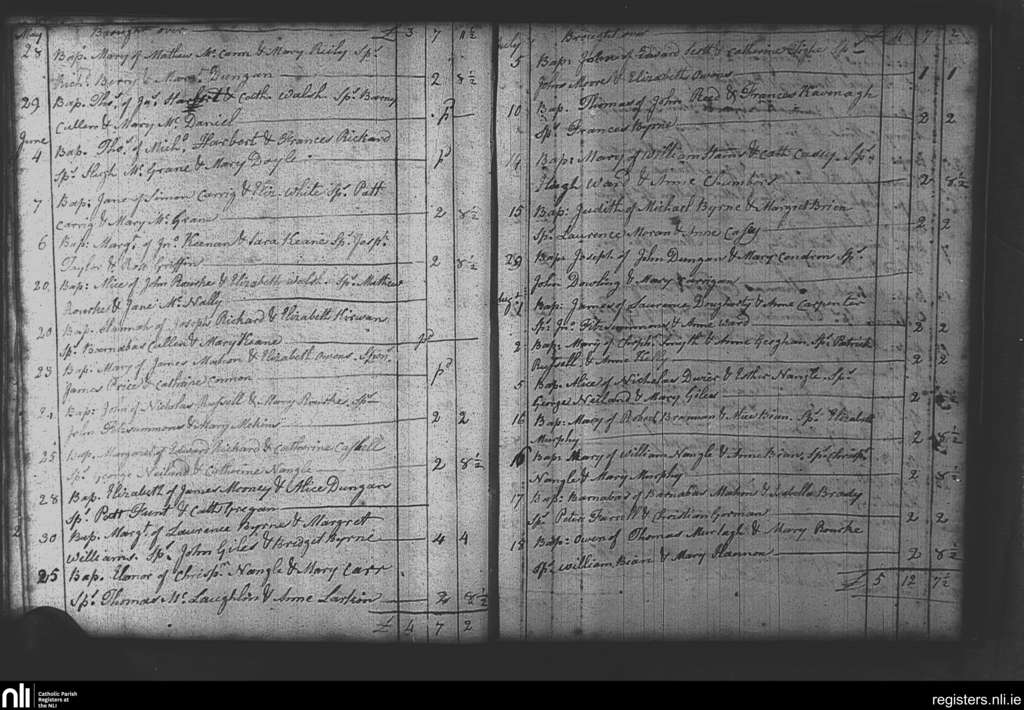 May Brought over £ 3 7 11½
28 Bap. Mary of Mathew Mc Cann & Mary Reily Spr.
Richd. Berry & Margt. Dungan 2 8½
29 Bap. Thos. of Jno. Harbort & Cath. Walsh Spr. Barny
Cullen & Mary Mc Daniel pd
June
4 Bap. Thos. of Michl. Harbort & Frances Rickard
Spr. Hugh Mc Grane & Mary Doyle pd
7 Bap. Jane of Simon Carrig & Eliz. White Spr. Patt
Carrig & Mary Mc Grane 2 8½
6 Bap: Margt. of Jno. Keenan & Sara Keane Spr. Josph.
Taylor & Rose Griffin 2 8½
20 Bap: Alice of John Rourke & Elizabeth Walsh Spr. Mathew
Rourke & Jane Mc Nally
20 Bap. Hannah of Joseph Rickard & Elizabeth Kirwan
Spr. Barnabas Cullen & Mary Keane pd
23 Bap: Mary of James Mahon & Elizabeth Owens. Spr.
James Price & Catharine Connon pd
Bap: John of Nicholas Russell & Mary Rourke. Spr.
John Fitzsimmons & Mary 2 2
25 Bap. Margaret of Edward Rickard & Catharine Cassell
Spr. George Neiland & Catharine Nangle 2 8½
28 Bap. Elizabeth of James Mooney & Alice Dungan
Spr. Patt Hunt & Cath. Gregan
30 Bap. Margt. of Laurence Byrne & Margret
Williams. Spr. John Giles & Bridget Byrne 4 4
25 Bap. Elanor of Chrisr. Nangle & Mary Carr
Spr. Thomas Mc Laughlin & Anne Larkin 2 8½
£ 4 7 2
July Brought over £ 4 7 2
5 Bap: John of Edward Scott & Catherine Spr.
John More & Elizabeth Owens 1 1
10 Bap. Thomas of John Reid & Frances Kavenagh
Spr. Frances Byrne 2 2
14 Bap: Mary of William & Cath Casey. Spr.
Hugh Ward & Anne Chambers 2 8½
15 Bap: Judith of Michael Byrne & Margret Brien
Spr. Laurence Moran & Anne Casey 2 2
29 Bap: Joseph of John Dungan & Mary Condron Spr.
John Dowling & Mary Carrigan
Augt. 1 Bap: James of Laurence Dougharty & Anne Carpenter
Spr. Jno. Fitzsimmons & Anne Ward 2 2
2 Bap: Mary of Chrisr. Smyth & Anne Geoghan Spr. Patrick
Russell & Anne Kelly 2 2
5 Bap. Alice of Nicholas Dwier & Esther Nangle. Spr.
George Neiland & Mary Giles 2
16 Bap: Mary of Robert & Alice Bian. Spr. Elizabeth
Murphy 2 8½
16 Bap: Mary of William Nangle & Anne Bian, Spr. Chrisr.
Nangle & Mary Murphy 2 8½
17 Bap: Barnabas of Barnabas Mahon & Isabella Brady
Spr. Peter Farrell & Christian Gorman 2 2
18 Bap: Owen of Thomas Murtagh & Mary Rourke
Spr. William Bian & Mary Hannon 2 8½
£ 5 12 7½
nli Catholic Parish
Registers at
the NLI
registers.nli.ie